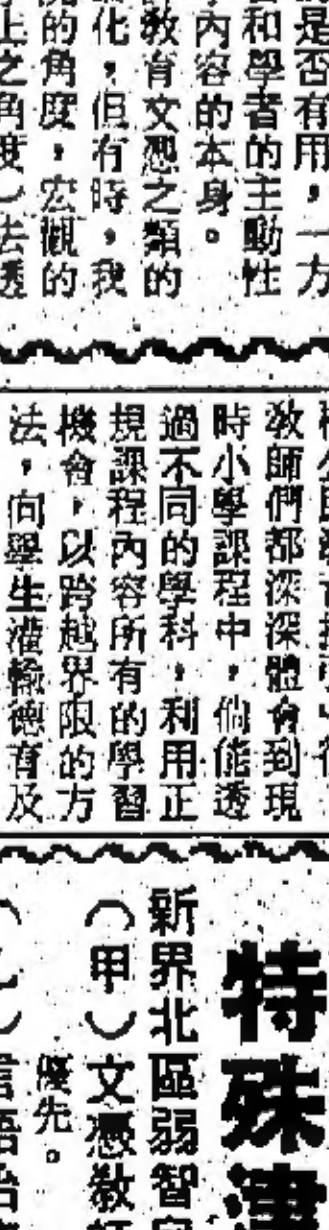 是否有用，一方
和學者的主動性
內容的本身。
教育文憑之類的
化，但有時，我
的角度，宏觀的
上之角度）去透
教師們都深深體會到現
時小學課程中，倘能透
過不同的學科，利用正
規課程內容所有的學習
機會，以跨越界限的方
法，向學生灌輸德育及
特殊
新界北區弱智
（甲）文憑教
優先。